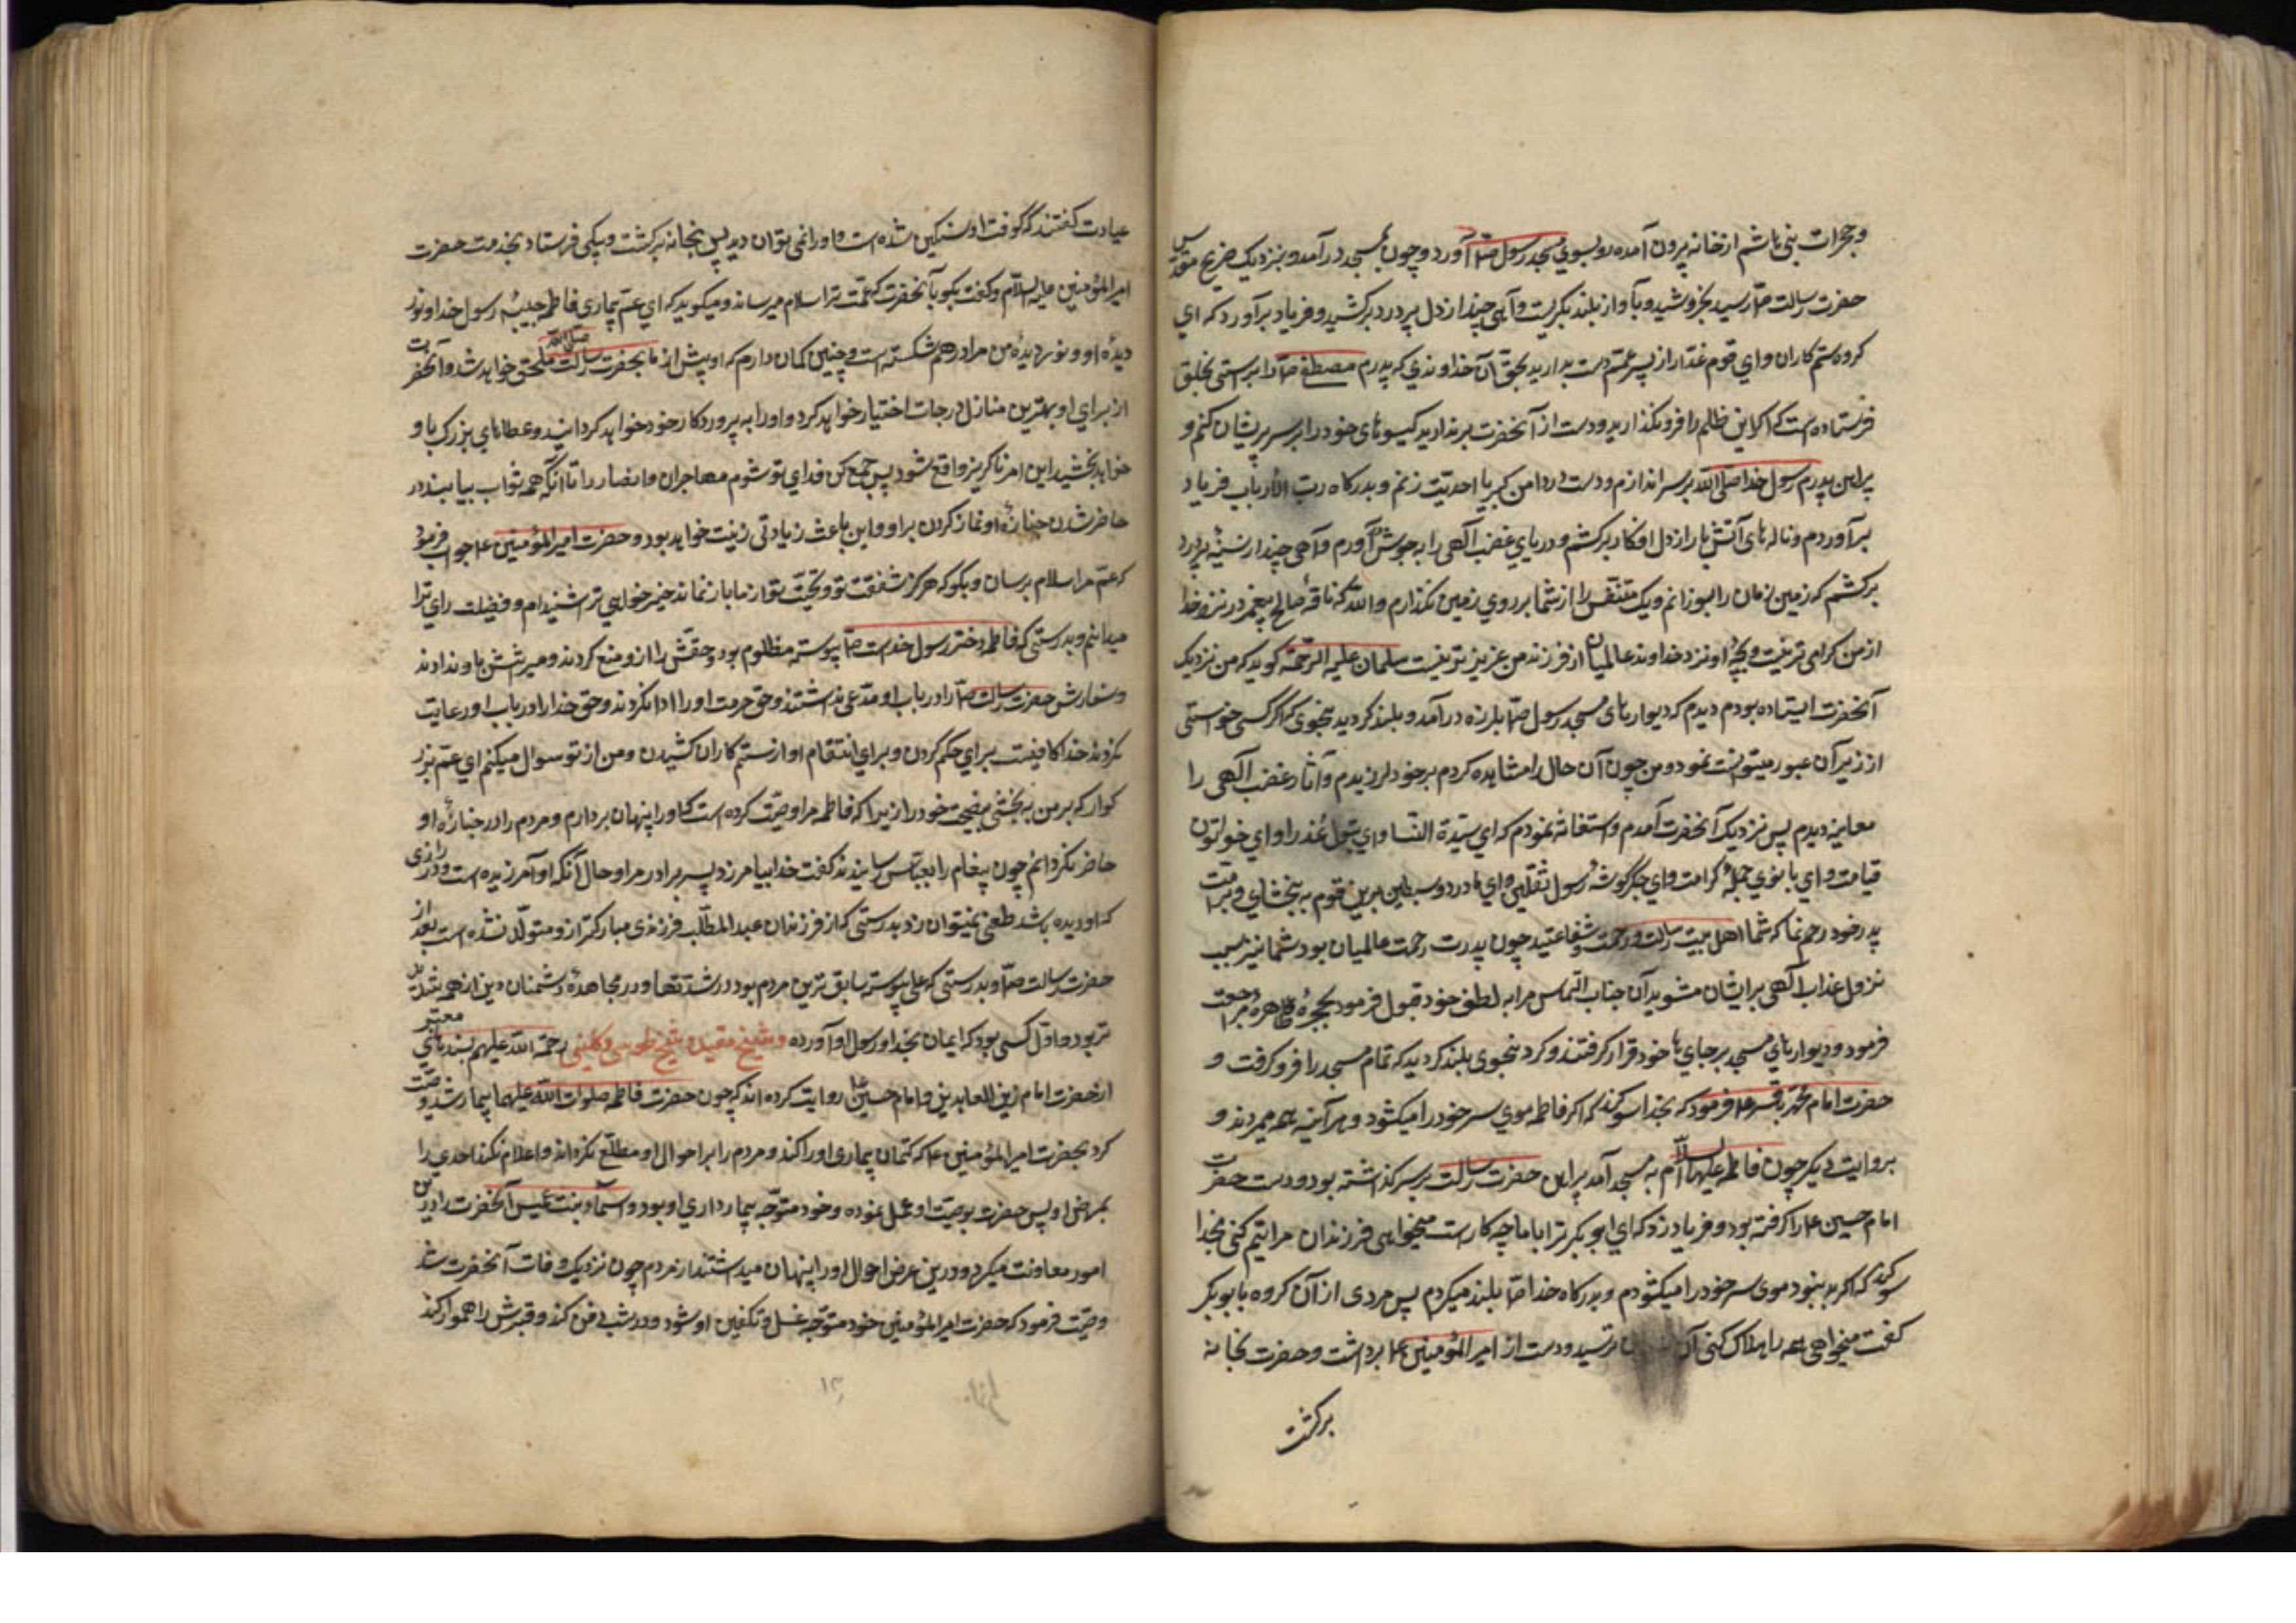 وحجرات بنی هاشم از خانه بیرون آمده رو بسوی مسجد رسول ص آورد و چون بمسجد درآمد و بنزدیک ضریح مقدس
حضرت رسالت ص رسید بخروشید و بآواز بلند بکریست و آهی چند از دل پر درد برکشید و فریاد برآورد که ای
کروه ستم کاران و ای قوم غدار از پسر عمم دست بدارید بحق آن خداوندی که پدرم مصطفی ص را براستی بخلق
فرستاده است که اکر این ظلم را فرو نکذارید و دست از آنحضرت برندارید کیسوهای خود را بر سر پریشان کنم و
پیراهن پدرم رسول خدا صلی الله بر سر اندازم و دست در دامن کبریا احدیت زنم و بدرکاه رب الارباب فریاد
برآوردم و ناله های آتش بار از دل افکار برکشم و دریای غضب آلهی را به جوش آورم و آهی چند از سینه پر درد
برکشم که زمین زمان را بسوزانم و یک متنفس را از شما بر روی زمین نکذارم والله که ناقه صالح پیغمبر در نزد خدا
از من کرامی تر نیست و بچه او نزد خداوند عالمیان از فرزند من عزیز تر نیست سلمان علیه الرحمه کوید که من نزدیک
آنحضرت ایستاده بودم دیدم که دیوارهای مسجد رسول ص بلرزه درآمد و بلند کردید بنحوی که اکر کسی خواستی
از زیر آن عبور میتوانست نمود و من چون آن حال را مشاهده کردم بر خود لرزیدم و آثار غضب آلهی را
معاینه دیدم پس نزدیک آنحضرت آمدم و استغاثه نمودم که ای سیدة النسا و ای بتول عذرا و ای خواتون
قیامت و ای بانوی حجله کرامت و ای جکرکوشه رسول ثقلین و ای مادر دو سبطین برین قوم به بخشای و برامت
پدر خود رحم نما که شما اهل بیت رسالت و رحمت و شفاعتید چون پدرت رحمت عالمیان بود شما نیز سبب
نزول عذاب آلهی بر ایشان مشوید آن جناب التماس مرا به لطف خود قبول فرمود بحجره طاهره مراجعت
فرمود و دیوارهای مسجد بر جای خود قرار کرفتند و کرد بنحوی بلند کردید که تمام مسجد را فرو کرفت و
حضرت امام محمد باقر ع فرمود که بخدا سوکند که اکر فاطمه موی سر خود را میکشود هرآینه همه میمردند و
بروایت دیکر چون فاطمه علیها السلام به مسجد آمد پیراهن حضرت رسالت بر سر کذاشته بود و دست حضرت
امام حسین ع را کرفته بود و فریاد زد که ای ابوبکر ترا با ما چه کار است میخواهی فرزندان مرا یتیم کنی بخدا
سوکند که اکر بد نبود موی سر خود را میکشودم و بدرکاه خدا صدا بلند میکردم پس مردی از آن کروه بابوبکر
کفت میخواهی همه را هلاک کنی ترسید و دست از امیر المؤمنین ع برداشت و حضرت بخانه
برکشت
عیادت کفتند که کوفت او سنکین شده است و او را نمی توان دید پس بخانه برکشت و پیکی فرستاد بخدمت حضرت
امیر المؤمنین علیه السلام و کفت بکو بآنحضرت که عمت ترا سلام میرساند و میکوید که ای عم بیماری فاطمه حبیبه رسول خدا و نور
دیده او و نور دیده من مرا درهم شکسته است و چنین کمان دارم که او پیش از ما بحضرت رسالت صلی الله ملحق خواهد شد و آنحضرت
از برای او بهترین منازل درجات اختیار خواهد کرد و او را به پروردکار خود خواهد کردانید و عطاهای بزرک باو
خواهد بخشید این امر ناکریز واقع شود پس جمع کن فدای تو شوم مهاجران و انصار را تا آنکه همه ثواب بیابند در
حاضر شدن جنازه او و نماز کردن بر او و این باعث زیادتی زینت خواهد بود و حضرت امیر المؤمنین ع جواب فرمود
که عم مرا سلام برسان و بکو که هرکز شفقت تو و تحیت تو از ما باز نماند خیر خواهی ترا شنیدم و فضیلت رای ترا
میدانم و بدرستی که فاطمه دختر رسول خداست ص پیوسته مظلوم بود و حقش را ازو منع کردند و میراثش باو ندادند
و سفارش حضرت رسالت ص را در باب او مدعی نداشتند و حق حرمت او را ادا نکردند و حق خدا را در باب او رعایت
نکردند خدا کافیست برای حکم کردن و برای انتقام او از ستم کاران کشیدن و من از تو سوال میکنم ای عم بزر
کوار که بر من به بخشی نصیحت خود را زیرا که فاطمه مرا وصیت کرده است که او را پنهان بردارم و مردم را در جنازه او
حاضر نکردانم چون پیغام را بعباس رسانیدند کفت خدا بیامرزد پسر برادر مرا و حال آنکه او آمرزیده است و در رازی
که او دیده باشد طعن نمیتوان زد بدرستی که از فرزندان عبد المطلب فرزندی مبارکتر ازو متولد نشده است بعد از
حضرت رسالت ص و بدرستی که علی پیوسته سابق ترین مردم بود در شدتها و در مجاهده دشمنان دین از همه شدید
تر بود و اول کسی بود که ایمان بخدا و رسول او آورده و شیخ مفید و شیخ طوسی و کلینی رحمة الله علیهم بسندهای معتبر
از حضرت امام زین العابدین و امام حسین ع روایت کرده اند که چون حضرت فاطمه صلوات الله علیها بیمار شد وصیت
کرد بحضرت امیر المؤمنین ع که کتمان بیماری او را کند و مردم را بر احوال او مطلع نکرداند و اعلام نکند احدی را
بمرض او پس حضرت بوصیت او عمل نموده و خود متوجه بیمارداری او بود و اسمآء بنت عمیس آنحضرت را درین
امور معاونت میکرد و درین عرض احوال او را پنهان میداشتند از مردم چون نزدیک وفات آنحضرت شد
وصیت فرمود که حضرت امیر المؤمنین خود متوجه غسل و تکفین او شود و در شب دفن کند و قبرش را هموار کند